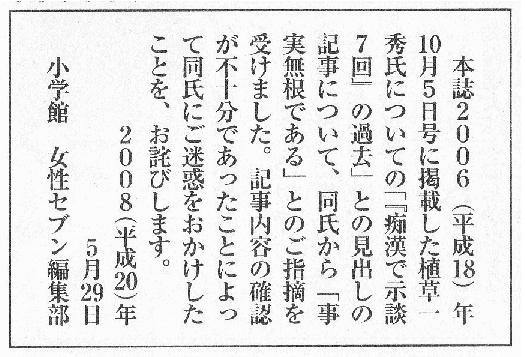 本誌2006（平成18）年
10月5日号に掲載した植草一
秀氏についての「『痴漢で示談
7回』の過去」との見出しの
記事について、同氏から「事
実無根である」とのご指摘を
受けました。記事内容の確認
が不十分であったことによっ
て同氏にご迷惑をおかけした
ことを、お詫びします。
2008（平成20）年
5月29日
小学館　女性セブン編集部